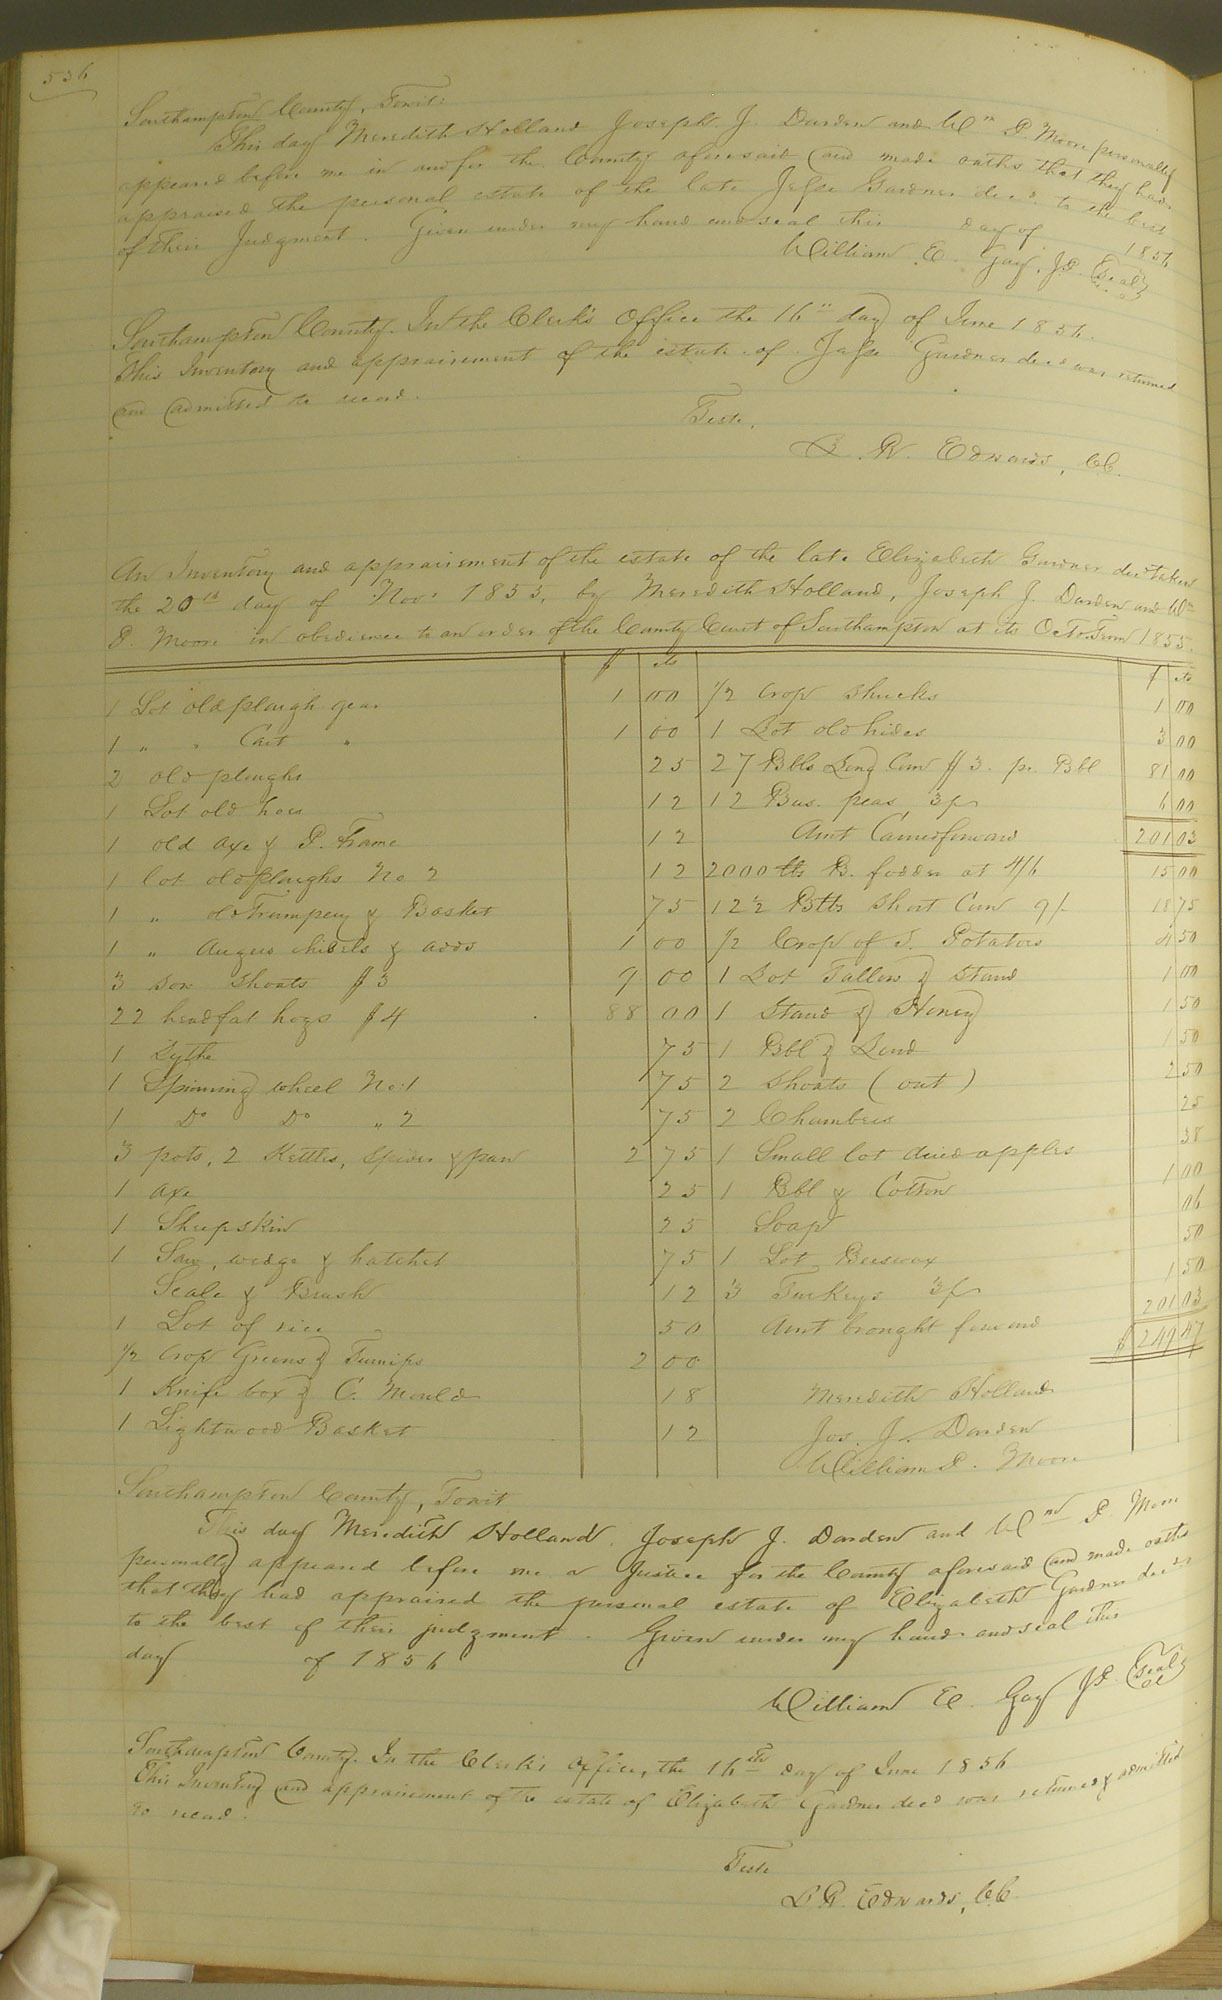 536
Southampton County, Towit:
This day Meredith Holland Joseph J. Darden and Wm P. Moore personally
appeared before me in and for the County aforesaid and made oaths that they had
appraised the personal estate of the late Jesse Gardner decd. to the best
of their Judgment. Given under my hand and seal this day of 1856
William E. Gay, J.P. {Seal}
Southampton County. In the Clerk's Office the 16" day of June 1856.
This Inventory and appraisement of the estate of Jesse Gardner decd was returned
and admitted to record.
Teste,
L. R. Edwards, C.C.
An Inventory and appraisement of the estate of the late Elizabeth Gardner decd taken
the 20th day of Nov: 1855, by Meredith Holland, Joseph J. Darden and Wm
P. Moore in obedience to an order of the County Court of Southampton at its Octo. Term 1855.
$ cts $ cts
1 Lot old plough gear 1 00 1/2 Crop Shucks 1 00
1 " " Cart " 1 00 1 Lot old hides 3 00
2 old ploughs 25 27 Bbls Long Corn $3. pr. Bbl 81 00
1 Lot old hoes 12 12 Bus. peas 3/ 6 00
1 old axe & P. Frame 12 Amt Carried forward 201 03
1 lot old ploughs No 2 12 2000 lbs B. fodder at 4/6 15 00
1 " old Trumpery & Basket 75 12 1/2 Bbls Short Corn 9/ 18 75
1 " Augers chisels & adds 1 00 1/2 Crop of S. Potatoes 4 50
3 sow Shoats $3 9 00 1 Lot Tallow & Stand 1 00
22 head fat hogs $4 88 00 1 Stand & Honey 1 50
1 Sythe 75 1 Bbl & Lard 1 50
1 Spinning wheel No: 1 75 2 Shoats (out) 2 50
1 Do Do " 2 75 2 Chambers 25
3 pots, 2 Kettles, Spider & pan 2 75 1 Small lot dried apples 38
1 axe 25 1 Bbl & Cotton 1 00
1 Sheepskin 25 Soap 06
1 Saw, wedge & hatchet 75 1 Lot Beeswax 50
Scale & Brush 12 3 Turkeys 3/ 1 50
1 Lot of rice 50 Amt brought forward 201 03
1/2 Crop Greens & Turnips 2 00 $ 249 47
1 Knife box & C. Moulds 18 Meredith Holland
1 Lightwood Basket 12 Jos. J. Darden
William P. Moore
Southampton County, Towit
This day Meredith Holland, Joseph J. Darden and Wm P. Moore
personally appeared before me a Justice for the County aforesaid and made oaths
that they had appraised the personal estate of Elizabeth Gardner decd
to the best of their judgment. Given under my hand and seal this
day of 1856
William E. Gay J.P. {Seal}
Southampton County. In the Clerk's office, the 16th day of June 1856
This Inventory and appraisement of the estate of Elizabeth Gardner decd was returned & admitted
to record.
Teste
L R. Edwards, C.C.